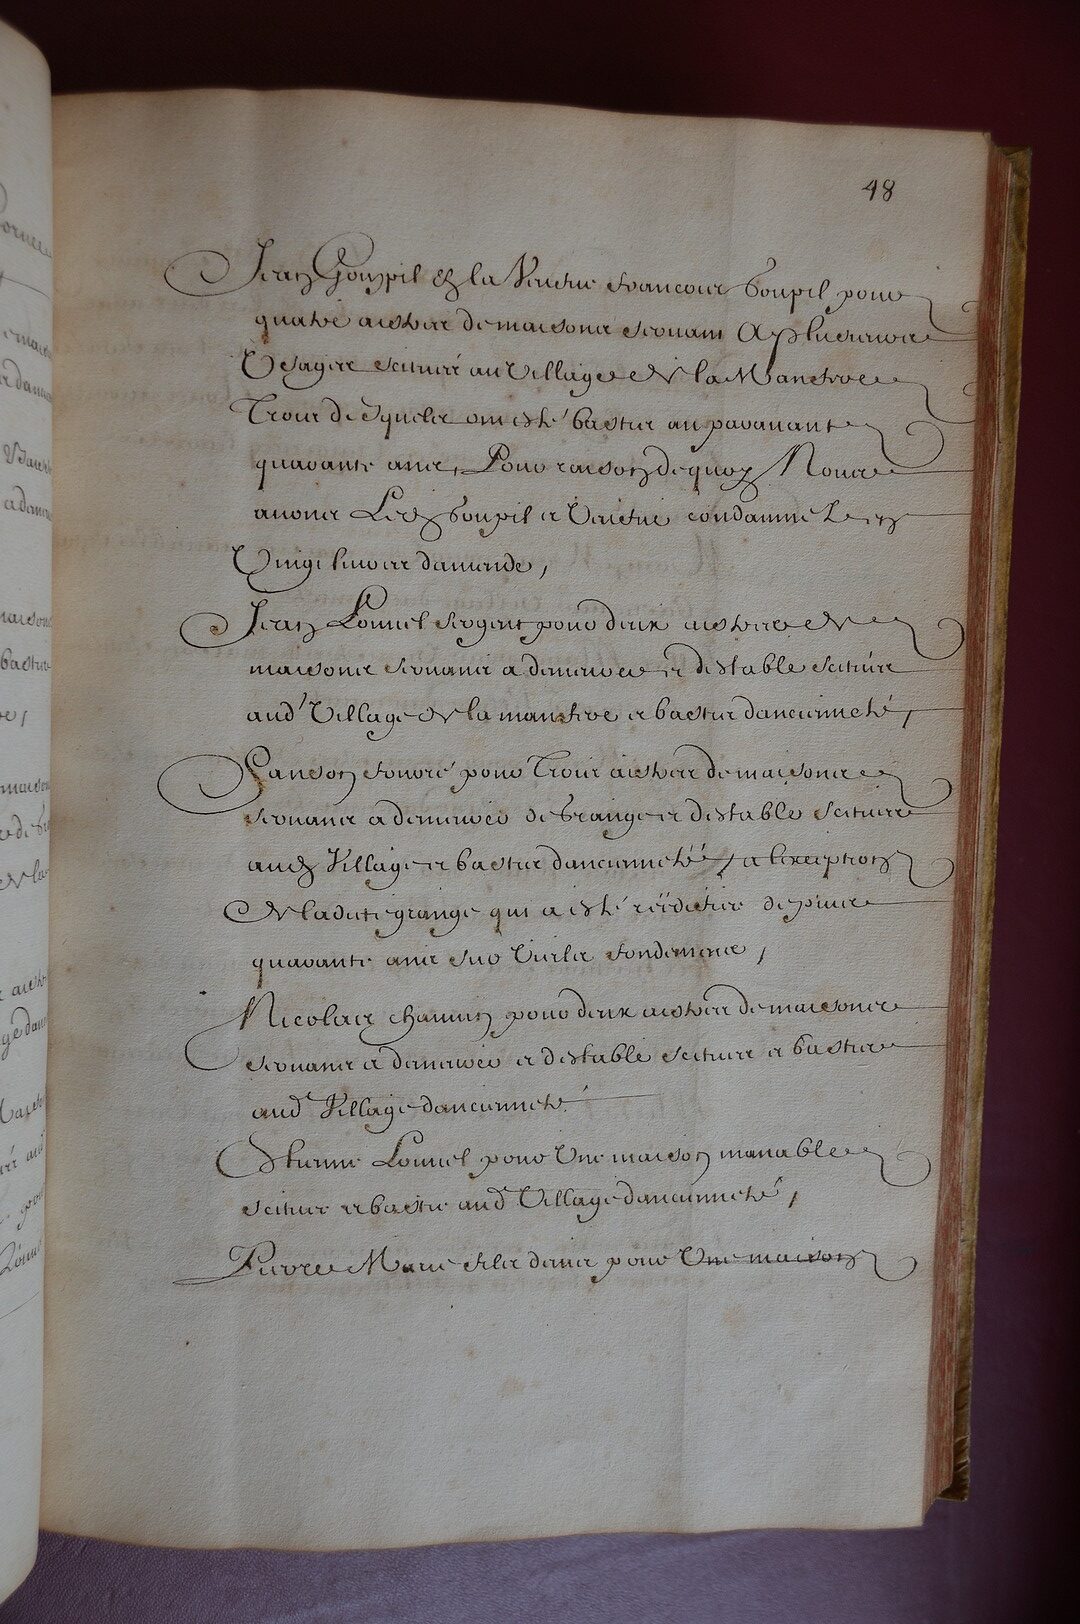 48
Jean Goupil et la Veufve francois Goupil pour
quatre aistres de maisons servans A plusieurs
Usages scitués au Village de la
Trois desquels ont esté bastis auparavant
quarante ans, Pour raison de quoy Nous
avons Lesd Goupil et Veufve condamné en
Vingt livres damende,
Jean Louvel sergent pour deux aistres de
maisons servans a demeure et destable scitués
aud Village de la et bastis dancienneté,
Sanson pour Trois aistres de maisons
servans a demeure de Grange et destable Scitués
aud Village et bastis dancienneté, a lexception
de ladite grange qui a esté réédifiée depuis
quarante ans sur Vieils fondemens,
Nicolas pour deux aistres de maisons
servans a demeure et destable scitués et bastis
aud Village dancienneté
Louvel pour Une maison manable
scituée et bastie aud Village dancienneté,
Pierre Marie fils denis pour Une maison